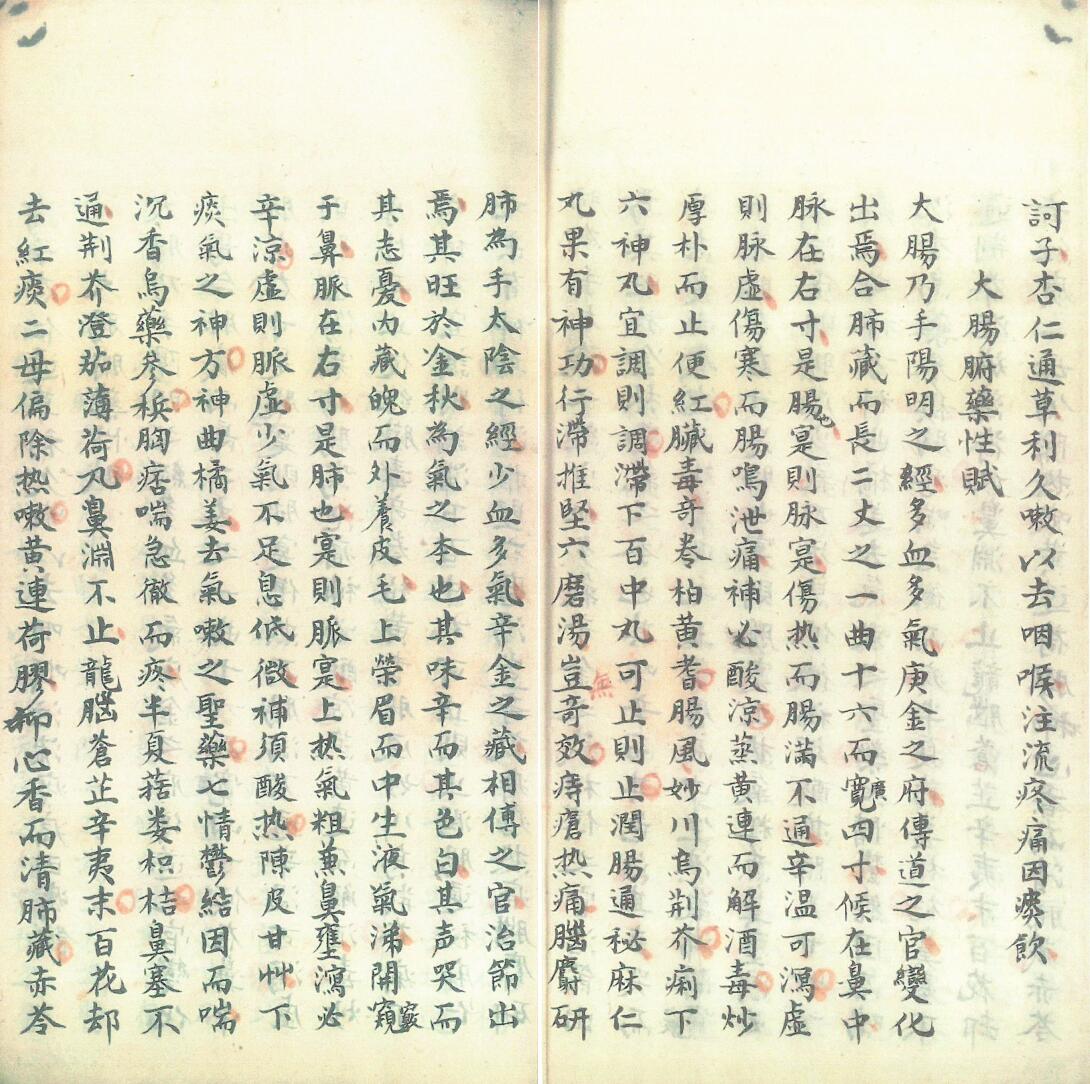 訶子杏仁通草利久嗽以去咽喉注流疼痛因痰飲
大腸腑藥性賦
大腸乃手陽明之經多血多氣庚金之府傳道之官變化
出焉合肺藏而長二丈之一曲十六而寬廣四寸候在鼻中
脉在右寸是腸也寔則脉寔傷热而腸滿不通辛温可瀉虛
則脉虛傷寒而腸鳴泄痛補必酸涼蒸黄連而解酒毒炒
厚朴而止便紅臟毒奇卷柏黄耆腸風妙川烏荆芥痢下
六神丸宜調則調滯下百中丸可止則止潤腸通秘麻仁
丸果有神功行滯推堅六磨湯豈無奇效痔瘡热痛腦麝研
肺為手太陰之經少血多氣辛金之藏相傅之官治節出
焉其旺於金秋為氣之本也其味辛而其色白其声哭而
其志憂內藏魄而外養皮毛上榮眉而中生液氣涕開竅
于鼻脈在右寸是肺也寔則脈寔上热氣粗兼鼻壅瀉必
辛涼虛則脈虛少氣不足息低微補須酸热陳皮甘艸下
痰氣之神方神曲橘姜去氣嗽之聖藥七情鬱結因而喘
沉香烏藥參梹胸痞喘急徹而疼半夏蔞枳桔鼻塞不
通荆芥澄茄薄荷丸鼻淵不止龍腦蒼芷辛夷末百花却
去紅痰二毋偏除热嗽黄連荷膠抑心香而清肺藏赤芩